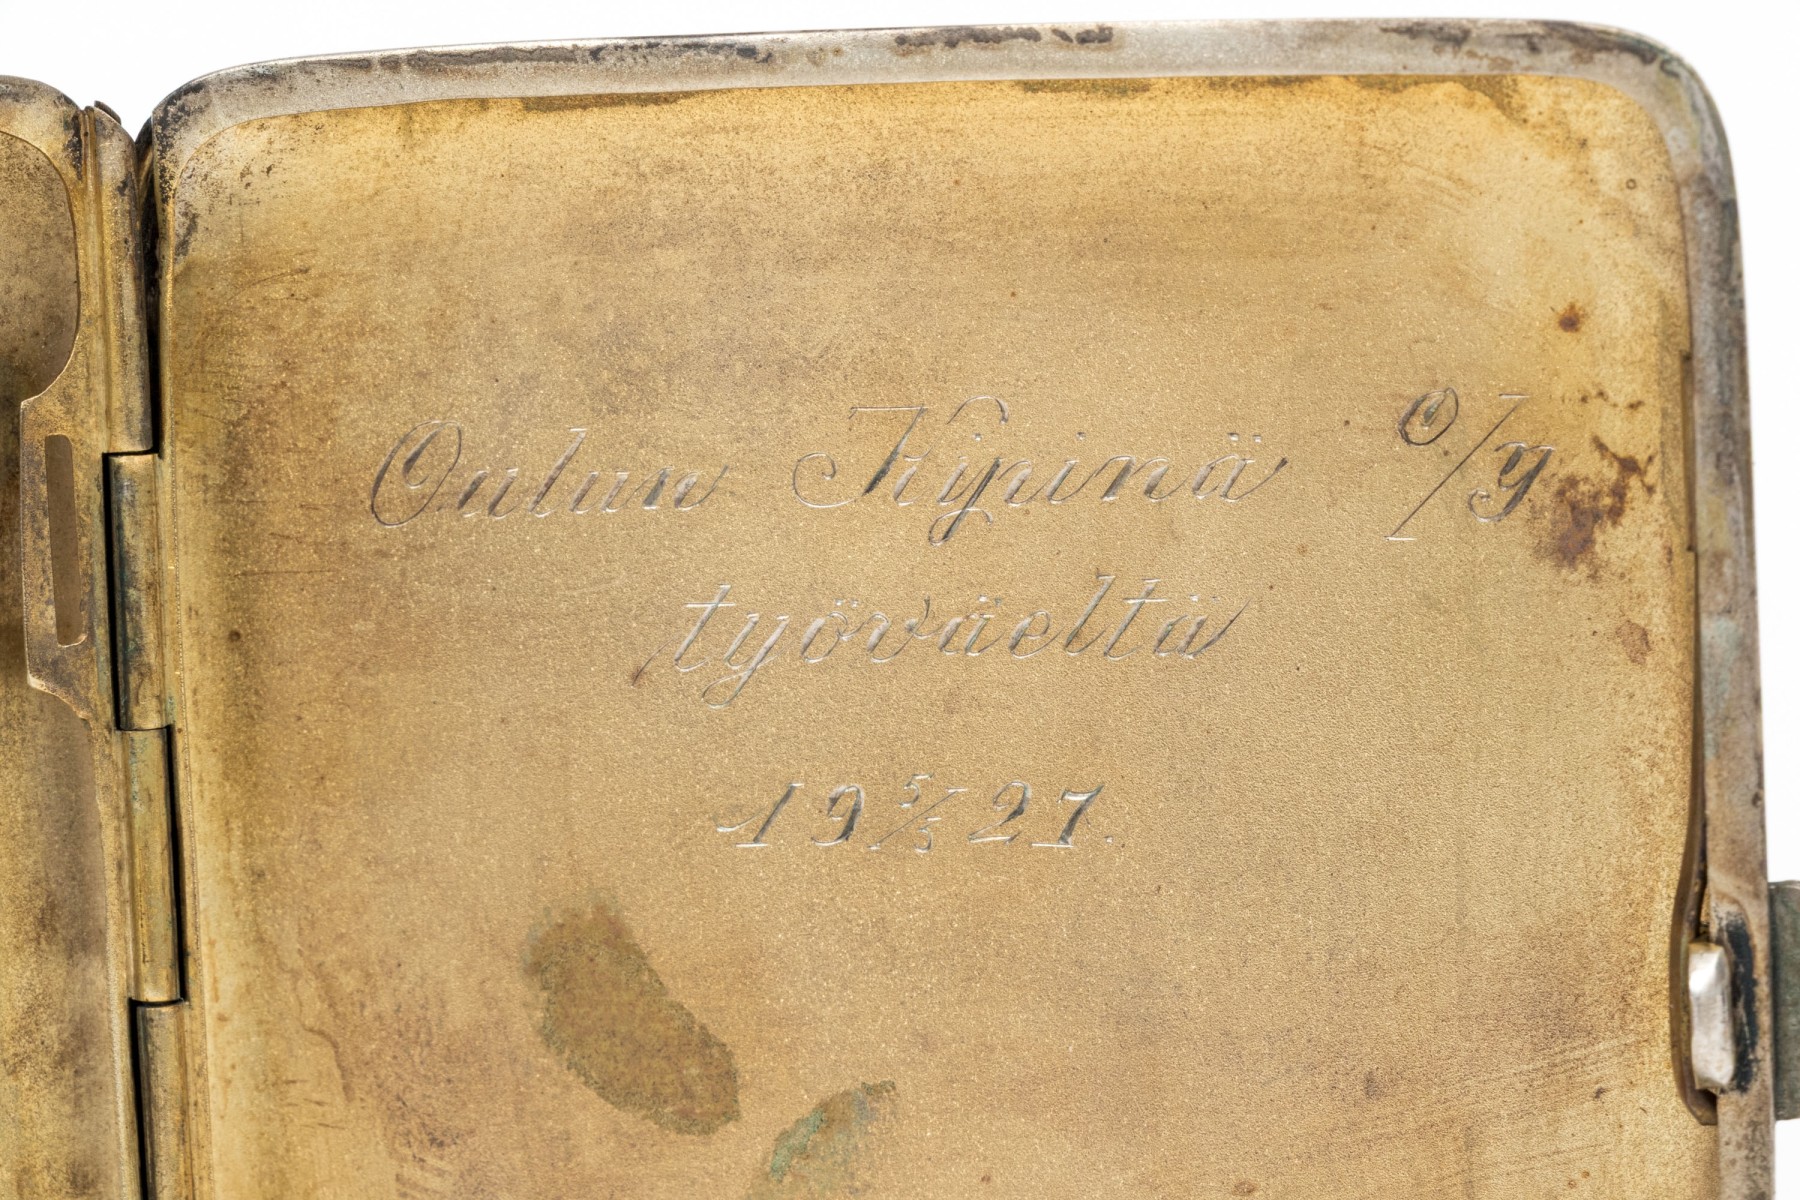 Oulun Kipinä O/Y
työväeltä
19 5/5 27.